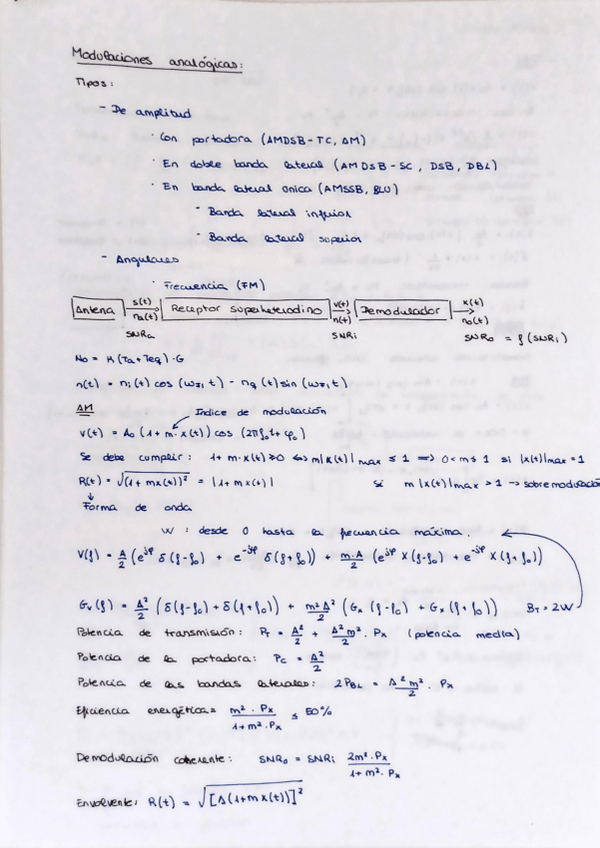 Modulaciones analógicas:
Tipos:
- De amplitud
· Con portadora (AMDSB-TC, AM)
· En doble banda lateral (AMDSB-SC, DSB, DBL)
· En banda lateral unica (AMSSB, BLU)
- Banda lateral inferior
- Banda lateral superior
- Angulares
· Frecuencia (FM)
Antena s(t) na(t) Receptor superheterodino v(t) n(t) Demodulador x(t) no(t)
SNRa SNRi SNRo = f(SNRi)
No = K(Ta+Teq)·G
n(t) = ni(t) cos (wFI t) - nq(t) sin (wFI t)
AM Indice de modulación
v(t) = Ao (1+m·x(t)) cos (2πfot+φo)
Se debe cumplir: 1+m·x(t) ≥0 ⇔ m|x(t)|max ≤ 1 ⇒ 0<m≤1 si |x(t)|max = 1
R(t) = √(1+mx(t))² = |1+mx(t)| Si m|x(t)|max > 1 → sobremodulación
Forma de onda
W: desde 0 hasta la frecuencia máxima.
V(f) = A/2 (e^jφ δ(f-fo) + e^-jφ δ(f+fo)) + m·A/2 (e^jφ X(f-fo) + e^-jφ X(f+fo))
Gv(f) = A²/2 (δ(f-fo) + δ(f+fo)) + m²A²/2 (Gx(f-fo) + Gx(f+fo)) BT = 2W
Potencia de transmisión: PT = A²/2 + A²m²/2 · Px (potencia media)
Potencia de la portadora: Pc = A²/2
Potencia de las bandas laterales: 2PBL = A²m²/2 · Px
Eficiencia energética = m²·Px/1+m²·Px ≤ 50%
Demodulación coherente: SNRo = SNRi 2m²·Px/1+m²·Px
Envolvente: R(t) = √[A(1+mx(t))]²